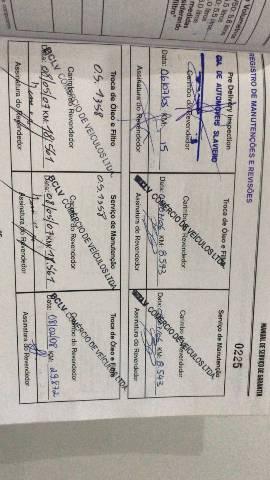 MANUAL DE SERVIÇO DE GARANTIA
0225
REGISTRO DE MANUTENÇÕES E REVISÕES
Pre Delivery Inspection
CIA. DE AUTOMÓVEIS SLAVIERO
Carimbo do Revendedor
Data: 06/07/05 KM: 15
Assinatura do Revendedor
Troca de Óleo e Filtro
BCLV COMÉRCIO DE VEÍCULOS LTDA.
Carimbo do Revendedor
KM: 8.593
Assinatura do Revendedor
Serviço de Manutenção
BCLV COMÉRCIO DE VEÍCULOS LTDA.
Carimbo do Revendedor
KM: 8.593
Assinatura do Revendedor
Troca de Óleo e Filtro
O.S. 1358
BCLV COMÉRCIO DE VEÍCULOS LTDA.
Carimbo do Revendedor
Data: 08/05/07 KM: 18.561
Assinatura do Revendedor
Serviço de Manutenção
O.S. 1358
BCLV COMÉRCIO DE VEÍCULOS LTDA.
Carimbo do Revendedor
Data: 08/05/07 KM: 18.561
Assinatura do Revendedor
Troca de Óleo e Filtro
BCLV COMÉRCIO DE VEÍCULOS LTDA.
Carimbo do Revendedor
Data: 08/02/08 KM: 29.872
Assinatura do Revendedor